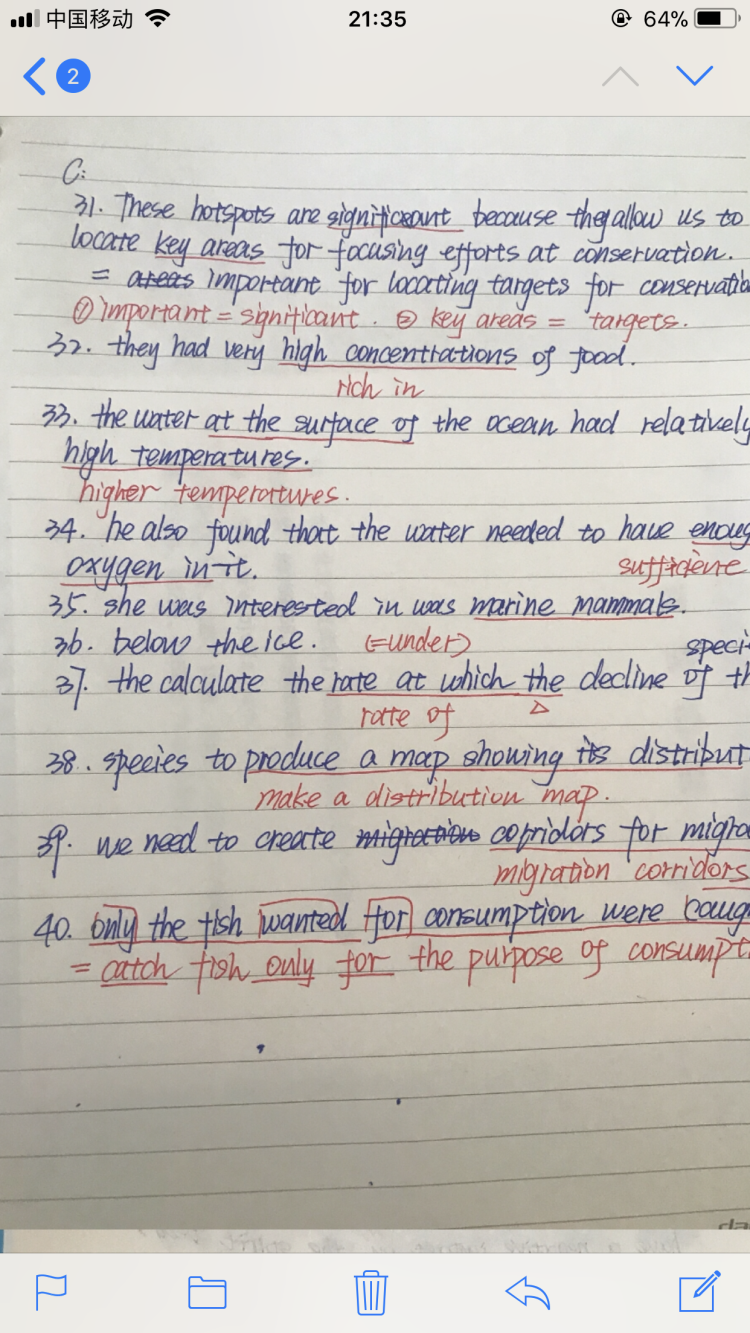 中国移动
21:35
64%
2
C:
31. These hotspots are significant because they allow us to
locate key areas for focusing efforts at conservation.
= areas important for locating targets for conservatio
① important = significant. ② key areas = targets.
32. they had very high concentrations of food.
rich in
33. the water at the surface of the ocean had relatively
high temperatures.
higher temperatures.
34. he also found that the water needed to have enoug
oxygen in it.
sufficiene
35. she was interested in was marine mammals.
36. below the ice. (=under)
speci
37. the calculate the rate at which the decline of th
rate of
38. species to produce a map showing its distribut
make a distribution map.
39. we need to create migration corridors for migra
migration corridors
40. only the fish wanted for consumption were caug
= catch fish only for the purpose of consumpt